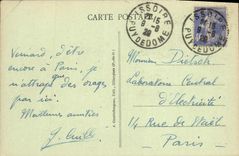 CARTE POSTALE
ISSOIRE
PUY-DE-DOME
ISSOIRE
PUY-DE-DOME
Veinard, d'être
encore à Paris, je
n'attrape des orages
par ici.
Meilleures amitiés
Monsieur Dietsch
Laboratoire Central
d'Electricité
14 Rue de Staël
Paris